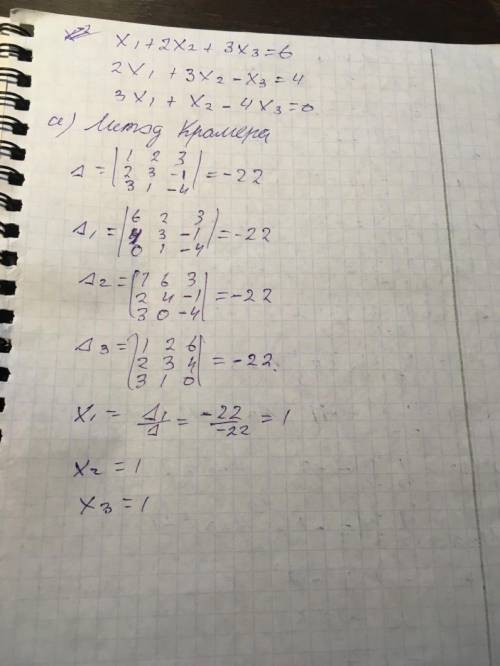 x₁ + 2x₂ + 3x₃ = 6
2x₁ + 3x₂ - x₃ = 4
3x₁ + x₂ - 4x₃ = 0
а) Метод Крамера
Δ = |1 2 3|
|2 3 -1| = -22
|3 1 -4|
Δ₁ = |6 2 3|
|4 3 -1| = -22
|0 1 -4|
Δ₂ = |1 6 3|
|2 4 -1| = -22
|3 0 -4|
Δ₃ = |1 2 6|
|2 3 4| = -22.
|3 1 0|
x₁ = Δ₁/Δ = -22/-22 = 1
x₂ = 1
x₃ = 1